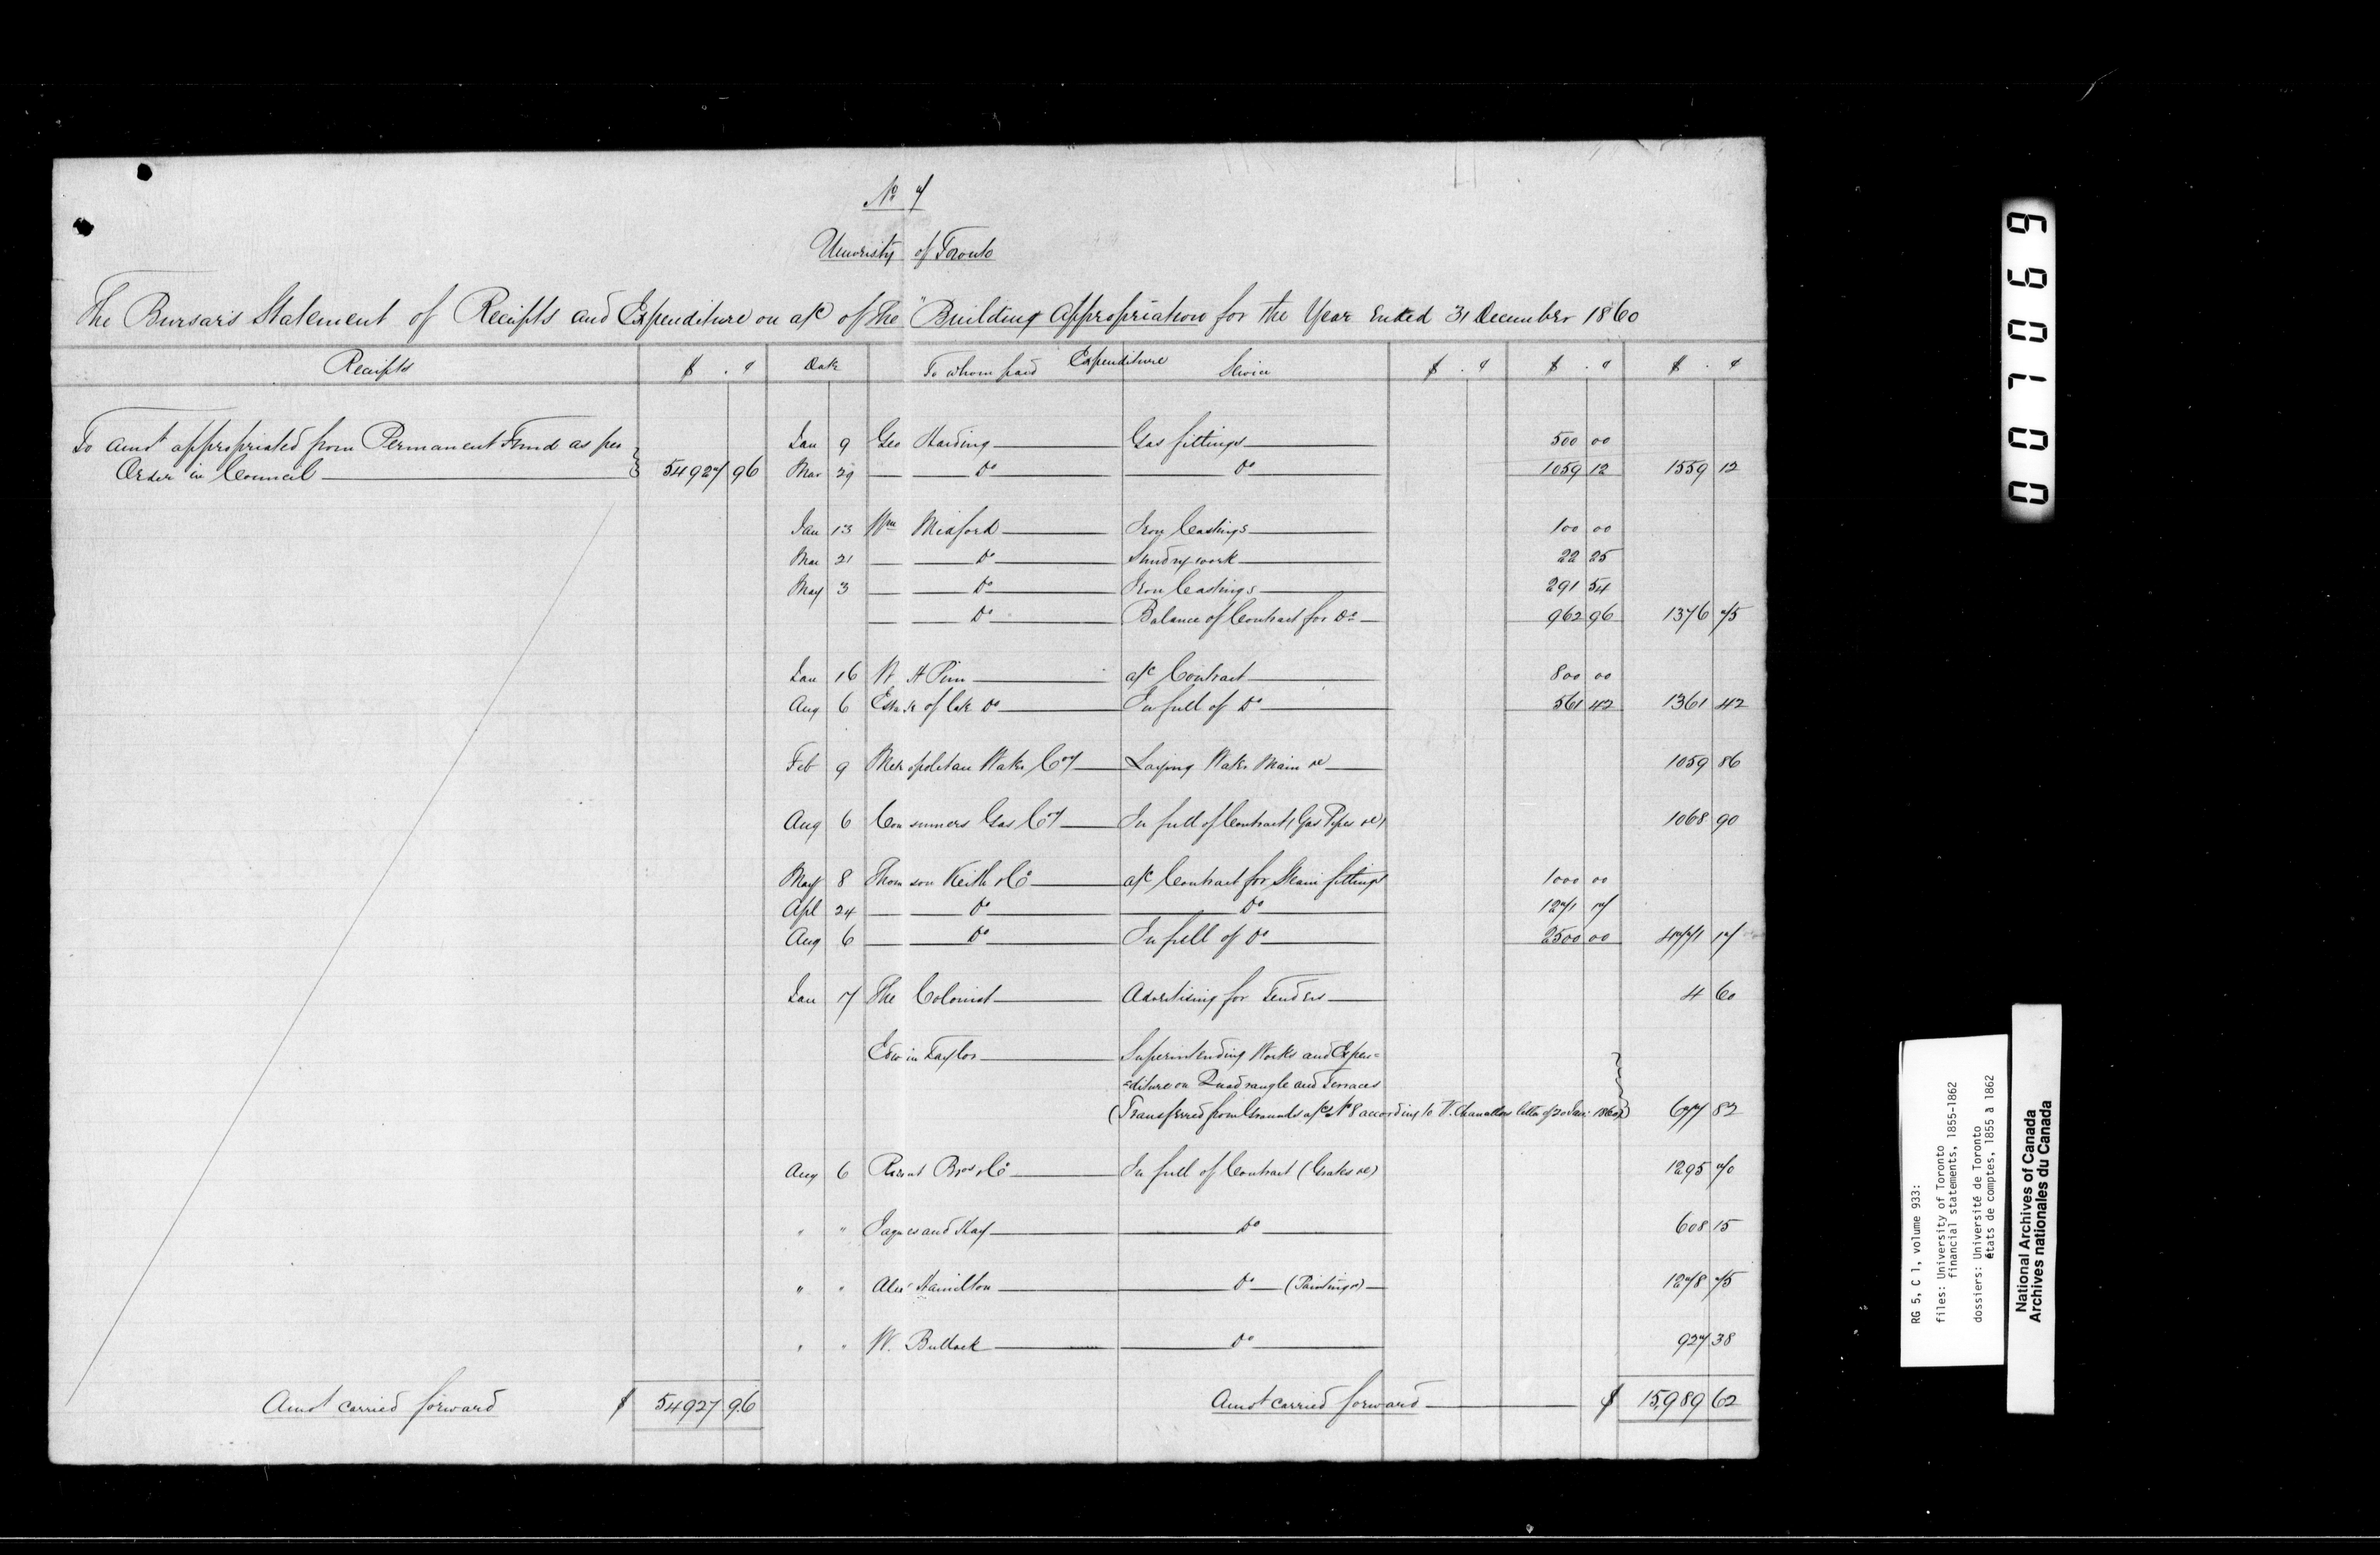 No 7
University of Toronto
The Bursar's Statement of Receipts and Expenditure on a/c of the "Building Appropriation for the Year Ended 31 December 1860
Receipts $ . c Date To whom paid Expenditure Service $ . c $ . c $ . c
To amot appropriated from Permanent Fund as per
Order in Council 54927 96
Jan 9 Geo Harding Gas fittings 500 00
Mar 29 Do Do 1059 12 1559 12
Jan 13 Wm Meaford Iron Castings 100 00
Mar 21 Do Sundry work 22 25
May 3 Do Iron Castings 291 54
Do Balance of Contract for Do 962 96 1376 75
Jan 16 W A Pim a/c Contract 800 00
Aug 6 Estate of late Do In full of Do 561 42 1361 42
Feb 9 Metropolitan Water Coy Laying Water Main &c 1059 86
Aug 6 Consumers Gas Coy In full of Contract (Gas Pipes &c) 1068 90
May 8 Thomson Keith & Co a/c Contract for Steam fittings 1000 00
Apl 24 Do Do 1271 17
Aug 6 Do In full of Do 2500 00 4771 17
Jan 17 The Colonist Advertising for Tenders 4 60
Edwin Taylor Superintending Works and Expen=
=diture on Quadrangle and Terraces
(Transferred from Grounds a/c No 8 according to V. Chancellors letter of 20 Jan: 1860) 677 82
Aug 6 Bros & Co In full of Contract (Grates &c) 1295 70
" " Jaques and Hay Do 608 15
" " Alexr Hamilton Do (Painting &c) 1278 75
" " W. Bullock Do 927 38
Amot carried forward $ 54927 96 Amot carried forward $ 15,989 62
007069
RG 5, C 1, volume 933:
files: University of Toronto
financial statements, 1855-1862
dossiers: Université de Toronto
états de comptes, 1855 à 1862
National Archives of Canada
Archives nationales du Canada